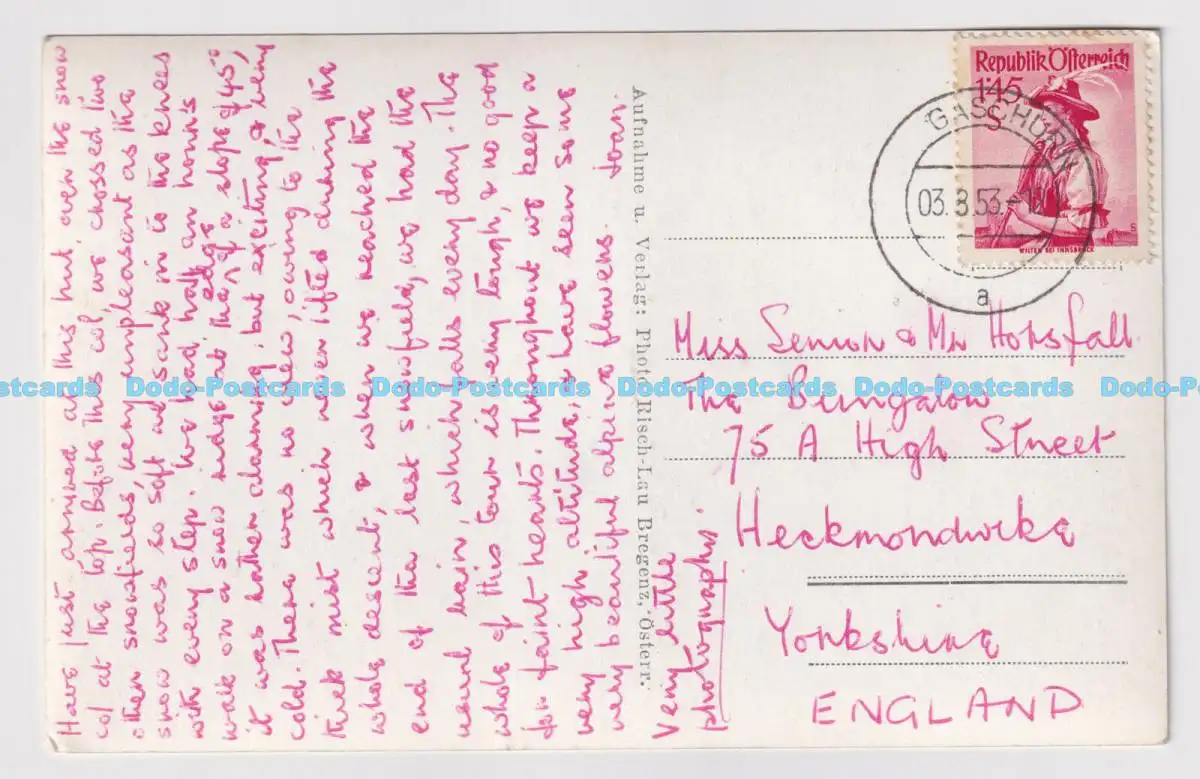 Have just arrived at this hut, over the snow
col at the top. Before the col, we crossed two
other snowfields, very unpleasant as the
snow was so soft we sank in to the knees
with every step. We had half an hours
walk on a snow ridge at the edge of a slope of 45°
it was rather alarming, but exciting, & very
cold. There was no view owing to the
thick mist which never lifted during the
whole descent, & when we reached the
end of the last snowfield, we had the
usual rain, which falls every day. The
whole of this tour is very tough, & no good
for faint hearts. Throughout we keep a
very high altitude, & have seen some
very beautiful alpine flowers. Joan.
Very little
photography.
Aufnahme u. Verlag: Photo Risch-Lau Bregenz, Österr.
Republik Österreich
1'45
S
WILTEN BEI INNSBRUCK
GASCHURN
03.8.53.
a
Miss Senior & Mr Horsfall.
The Bungalow
75 A High Street
Heckmondwike
Yorkshire
ENGLAND
Dodo-Postcards Dodo-Postcards Dodo-Postcards Dodo-Postcards Dodo-Postcards